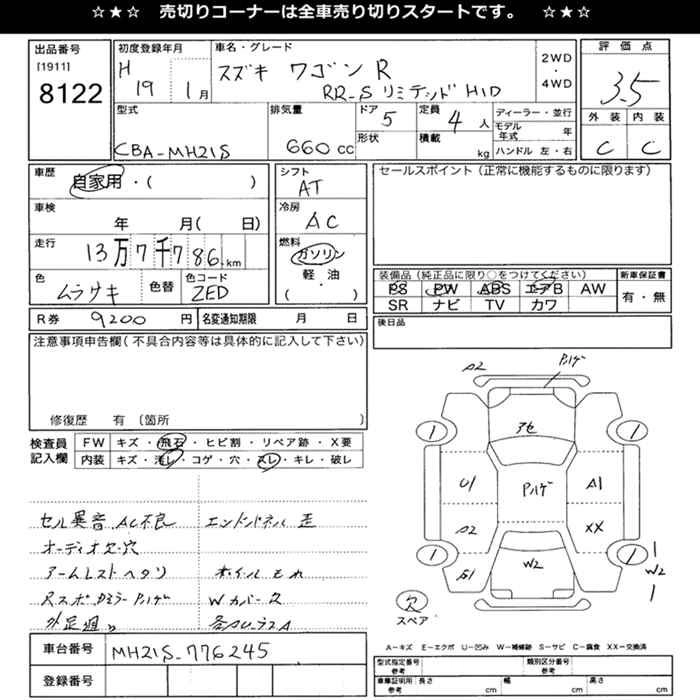 ☆★☆ 売切りコーナーは全車売り切りスタートです。 ☆★☆
出品番号
[1911]
8122
初度登録年月
H 19 1月
車名・グレード
スズキ ワゴンR
RR-S リミテッド HID
2WD
・
4WD
評価点
3.5
外装 内装
C C
型式
CBA-MH21S
排気量
660 cc
ドア 5
形状
定員 4 人
積載 kg
ディーラー・並行
モデル年式 年
ハンドル 左・右
車歴
自家用・( )
車検
年 月( 日)
走行
13万7千786 km
色
ムラサキ
色替
色コード
ZED
シフト
AT
冷房
AC
燃料
ガソリン
軽・油
( )
セールスポイント(正常に機能するものに限ります)
装備品(純正品に限り○をつけてください)
PS PW ABS エアB AW
SR ナビ TV カワ
新車保証書
有・無
R券 9200 円
名変通知期限 月 日
後日品
注意事項申告欄(不具合内容等は具体的に記入して下さい)
修復歴 有 〔箇所 〕
検査員
記入欄
FW キズ・飛石・ヒビ割・リペア跡・X要
内装 キズ・汚レ・コゲ・穴・スレ・キレ・破レ
セル異音 AC不良
エンドパネル 歪
オーディオ欠・穴
アームレスト ヘタリ
ホイルもれ
Wカバー欠
車台番号 MH21S-776245
登録番号
A2
アセ
1
1
U1
A1
A2
XX
1
1
W2
W2
欠
スペア
A-キズ E-エクボ U-凹み W-補修跡 S-サビ C-腐食 XX-交換済
型式指定番号
参考
類別区分番号
参考
車庫証明用
参考
長さ cm 幅 cm 高さ cm